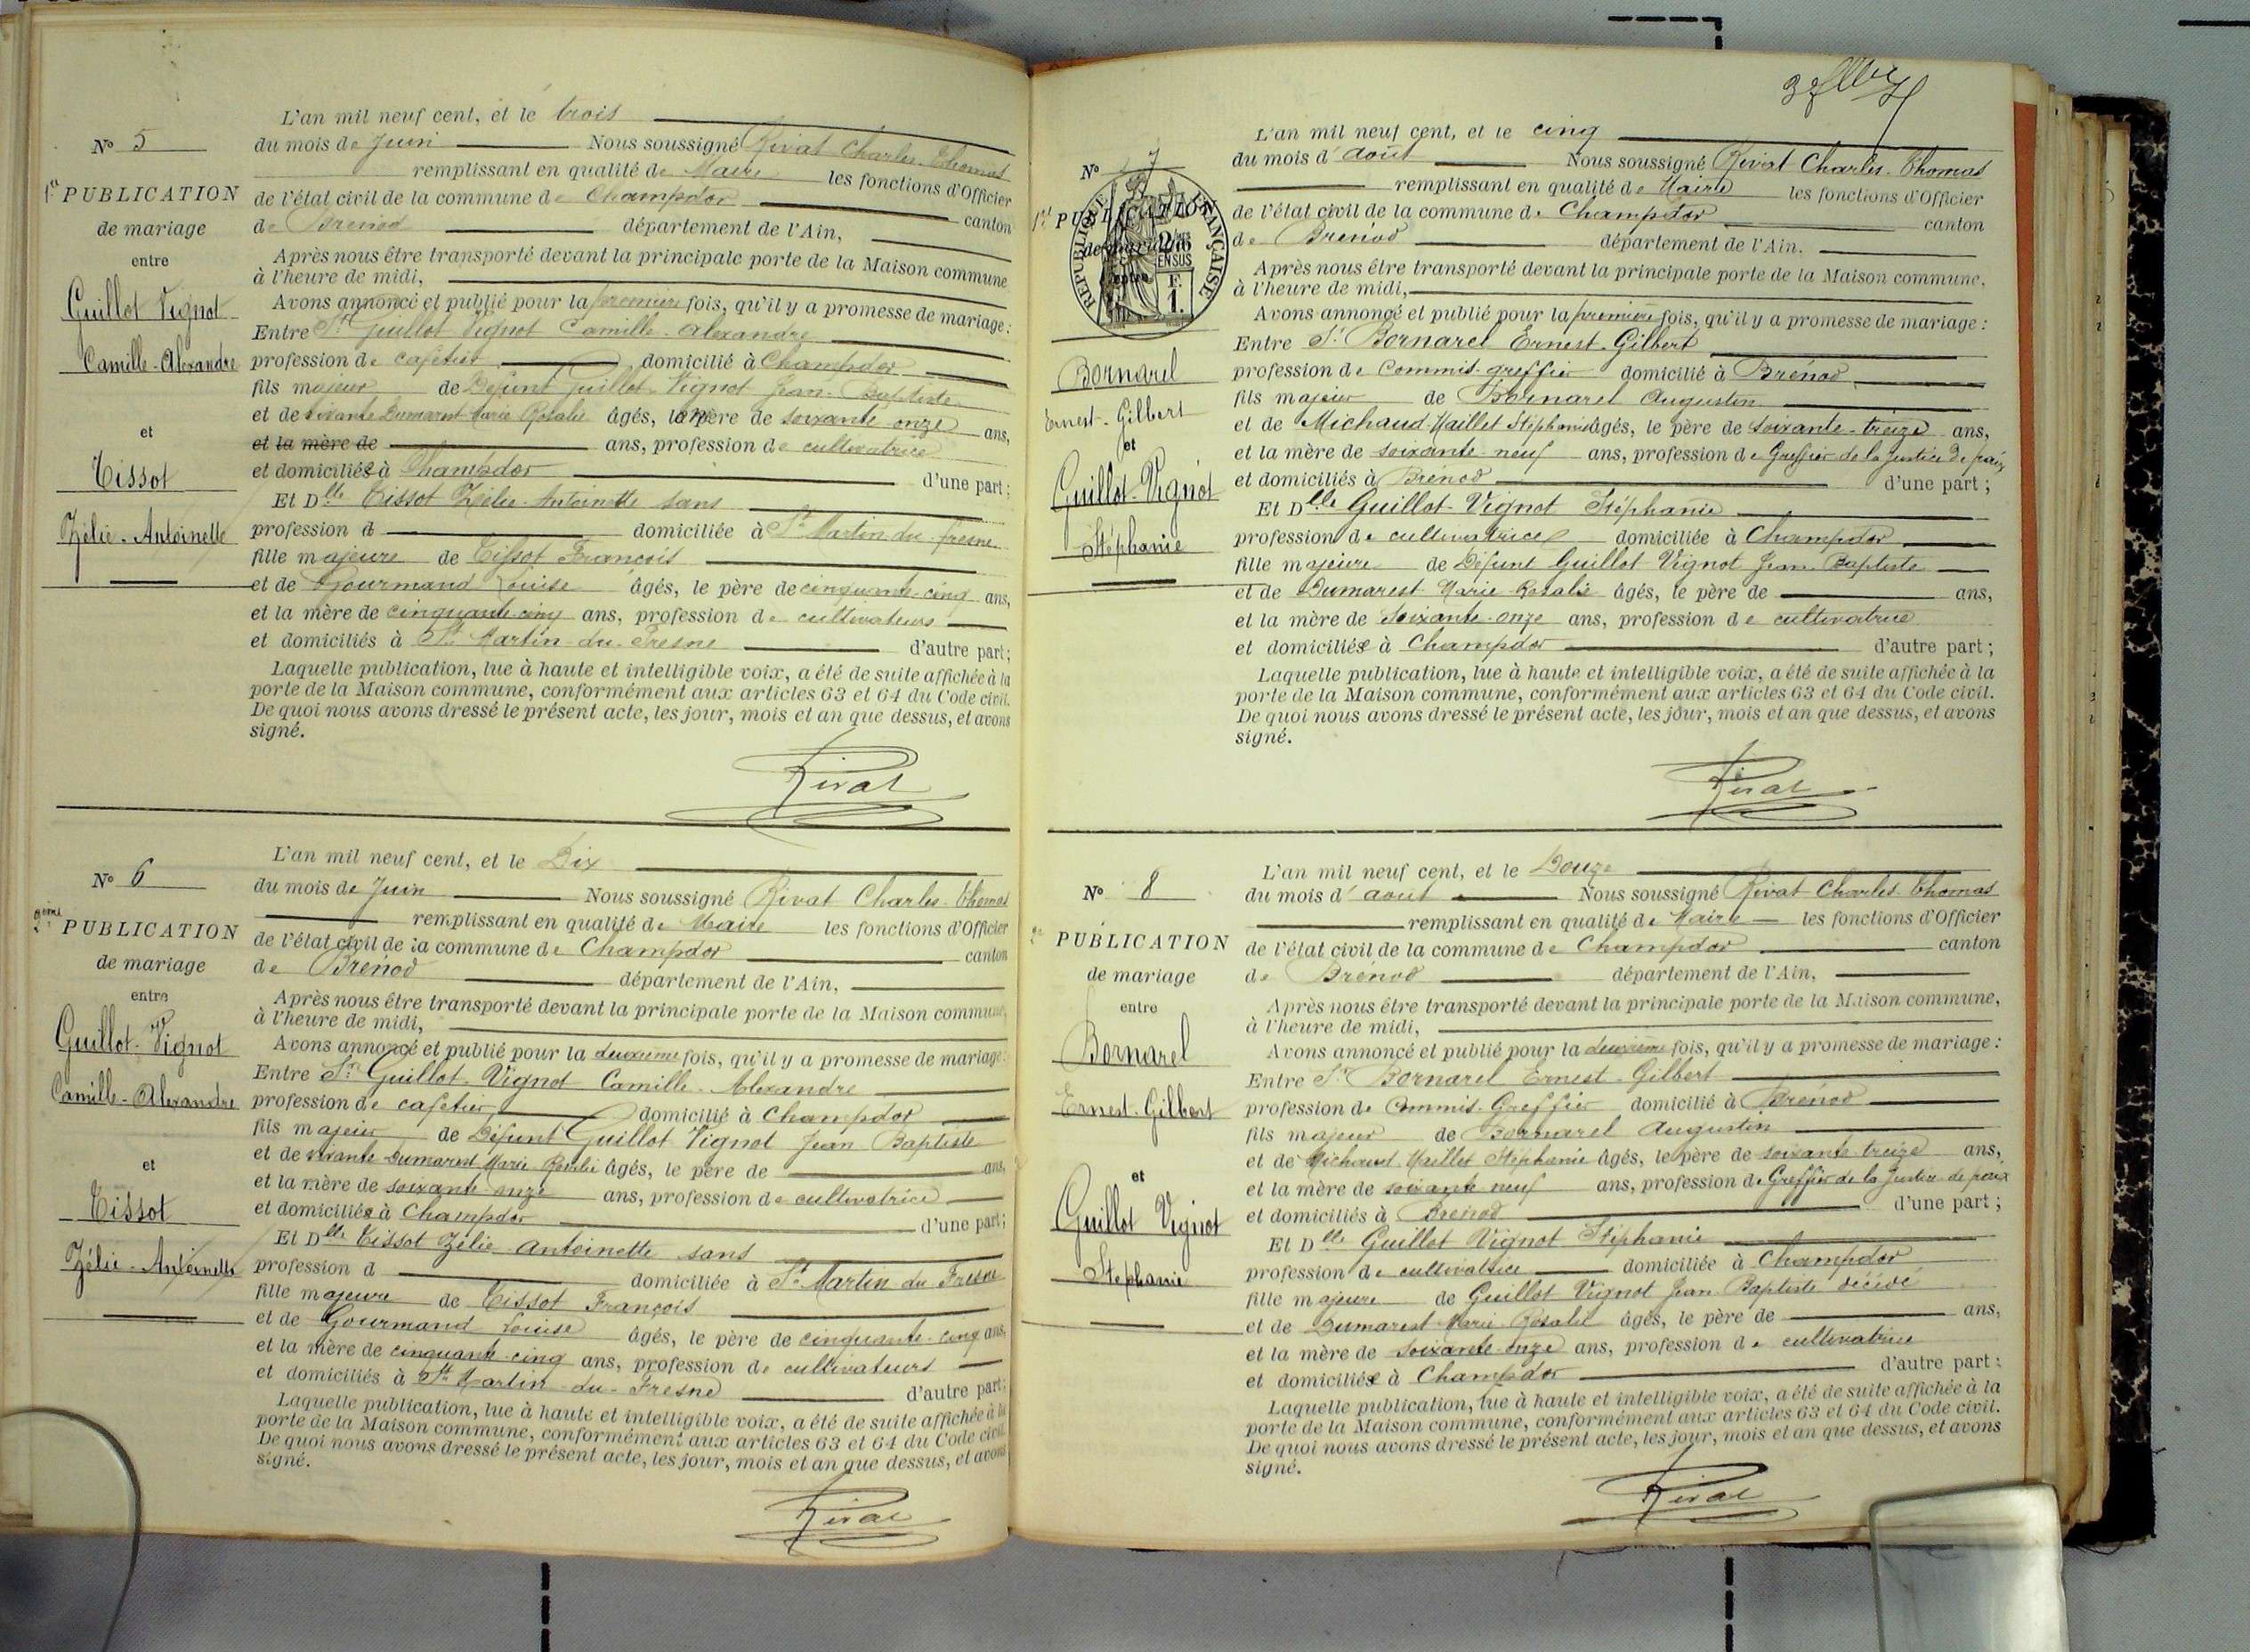 L'an mil neuf cent, et le trois
Nº 5
du mois de Juin Nous soussigné Rivat Charles-Thomas
remplissant en qualité de Maire les fonctions d'Officier
1re PUBLICATION
de l'état civil de la commune de Champdor canton
de mariage
de Brénod département de l'Ain,
entre
Après nous être transporté devant la principale porte de la Maison commune
à l'heure de midi,
Guillot Vignot
Avons annoncé et publié pour la première fois, qu'il y a promesse de mariage:
Entre Sr Guillot Vignot Camille-Alexandre
Camille-Alexandre
profession de cafetier domicilié à Champdor
fils majeur de Défunt Guillot-Vignot Jean-Baptiste
et de vivante Dumarest Marie Rosalie âgés, la mère de soixante onze ans,
et
et la mère de ans, profession de cultivatrice
Tissot
et domiciliée à Champdor d'une part;
Et Dlle Tissot Zélie-Antoinette sans
Zélie-Antoinette
profession d domiciliée à St Martin-du-fresne
fille majeure de Tissot François
et de Gourmand Louise âgés, le père de cinquante-cinq ans,
et la mère de cinquante-cinq ans, profession de cultivateurs
et domiciliés à St Martin-du-Fresne d'autre part;
Laquelle publication, lue à haute et intelligible voix, a été de suite affichée à la
porte de la Maison commune, conformément aux articles 63 et 64 du Code civil.
De quoi nous avons dressé le présent acte, les jour, mois et an que dessus, et avons
signé.
Rivat
L'an mil neuf cent, et le Dix
Nº 6
du mois de Juin Nous soussigné Rivat Charles-Thomas
remplissant en qualité de Maire les fonctions d'Officier
2ème PUBLICATION
de l'état civil de la commune de Champdor canton
de mariage
de Brénod département de l'Ain,
entre
Après nous être transporté devant la principale porte de la Maison commune,
à l'heure de midi,
Guillot-Vignot
Avons annoncé et publié pour la deuxième fois, qu'il y a promesse de mariage:
Entre Sr Guillot-Vignot Camille-Alexandre
Camille-Alexandre
profession de cafetier domicilié à Champdor
fils majeur de Défunt Guillot-Vignot Jean Baptiste
et de vivante Dumarest Marie Rosalie âgés, le père de ans,
et
et la mère de soixante-onze ans, profession de cultivatrice
Tissot
et domiciliée à Champdor d'une part;
Et Dlle Tissot Zélie-Antoinette sans
Zélie-Antoinette
profession d domiciliée à St Martin du Fresne
fille majeure de Tissot François
et de Gourmand Louise âgés, le père de cinquante-cinq ans,
et la mère de cinquante-cinq ans, profession de cultivateurs
et domiciliés à St Martin-du-Fresne d'autre part;
Laquelle publication, lue à haute et intelligible voix, a été de suite affichée à la
porte de la Maison commune, conformément aux articles 63 et 64 du Code civil.
De quoi nous avons dressé le présent acte, les jour, mois et an que dessus, et avons
signé.
Rivat
L'an mil neuf cent, et le cinq
Nº 7
du mois d'août Nous soussigné Rivat Charles-Thomas
remplissant en qualité de Maire les fonctions d'Officier
1re PUBLICATION
de l'état civil de la commune de Champdor canton
de mariage
de Brénod département de l'Ain.
entre
RÉPUBLIQUE FRANÇAISE
2/10es
EN SUS
F.
1.
Après nous être transporté devant la principale porte de la Maison commune,
à l'heure de midi,
Avons annoncé et publié pour la première fois, qu'il y a promesse de mariage:
Entre Sr Bornarel Ernest-Gilbert
Bornarel
profession de Commis-greffier domicilié à Brénod
fils majeur de Bornarel Augustin
Ernest-Gilbert
et de Michaud-Maillet Stéphanie âgés, le père de soixante-treize ans,
et
et la mère de soixante-neuf ans, profession de Greffier de la justice de paix
Guillot-Vignot
et domiciliés à Brénod d'une part;
Et Dlle Guillot-Vignot Stéphanie
Stéphanie
profession de cultivatrice domiciliée à Champdor
fille majeure de Défunt Guillot Vignot Jean-Baptiste
et de Dumarest Marie-Rosalie âgés, le père de ans,
et la mère de soixante-onze ans, profession de cultivatrice
et domiciliée à Champdor d'autre part;
Laquelle publication, lue à haute et intelligible voix, a été de suite affichée à la
porte de la Maison commune, conformément aux articles 63 et 64 du Code civil.
De quoi nous avons dressé le présent acte, les jour, mois et an que dessus, et avons
signé.
Rivat
L'an mil neuf cent, et le Douze
Nº 8
du mois d'août Nous soussigné Rivat Charles-Thomas
remplissant en qualité de Maire les fonctions d'Officier
PUBLICATION
de l'état civil de la commune de Champdor canton
de mariage
de Brénod département de l'Ain,
entre
Après nous être transporté devant la principale porte de la Maison commune,
à l'heure de midi,
Bornarel
Avons annoncé et publié pour la deuxième fois, qu'il y a promesse de mariage:
Entre Sr Bornarel Ernest-Gilbert
Ernest-Gilbert
profession de Commis-Greffier domicilié à Brénod
fils majeur de Bornarel Augustin
et de Michaud-Maillet Stéphanie âgés, le père de soixante treize ans,
et
et la mère de soixante-neuf ans, profession de Greffier de la Justice de paix
Guillot Vignot
et domiciliés à Brénod d'une part;
Et Dlle Guillot Vignot Stéphanie
Stéphanie
profession de cultivatrice domiciliée à Champdor
fille majeure de Guillot Vignot Jean-Baptiste décédé
et de Dumarest Marie-Rosalie âgés, le père de ans,
et la mère de soixante-onze ans, profession de cultivatrice
et domiciliée à Champdor d'autre part;
Laquelle publication, lue à haute et intelligible voix, a été de suite affichée à la
porte de la Maison commune, conformément aux articles 63 et 64 du Code civil.
De quoi nous avons dressé le présent acte, les jour, mois et an que dessus, et avons
signé.
Rivat